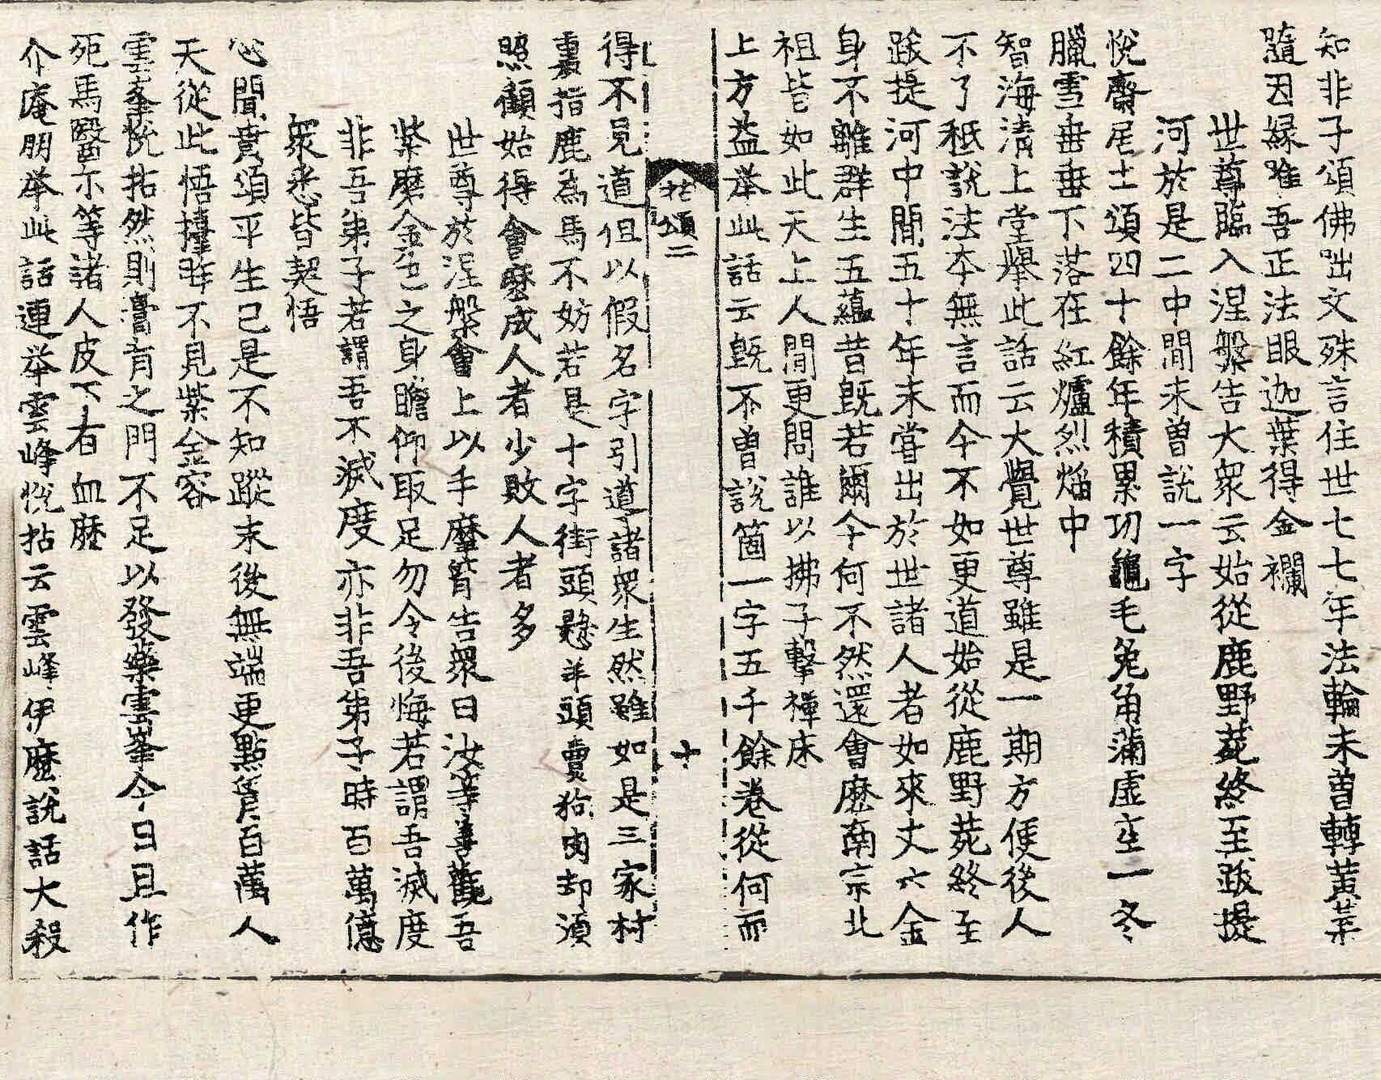 知非子頌佛咄文殊言住世七七年法輪未曾轉黃葉
隨因緣唯吾正法眼迦葉得金襴
世尊臨入涅槃告大眾云始從鹿野苑終至跋提
河於是二中間未曾說一字
悅齋居士頌四十餘年積累功龜毛兔角滿虛空一冬
臘雪垂垂下落在紅爐烈焰中
智海清上堂舉此話云大覺世尊雖是一期方便後人
不了秖說法本無言而今不如更道始從鹿野苑終至
跋提河中間五十年未嘗出於世諸人者如來丈六金
身不離群生五蘊昔既若爾今何不然還會麽南宗北
祖皆如此天上人間更問誰以拂子擊禪床
上方益举此話云旣不曾說箇一字五千餘卷從何而
拈頌二
十
得不見道但以假名字引導諸眾生然雖如是三家村
裏指鹿為馬不妨若是十字街頭懸羊頭賣狗肉却須
照顧始得會麽成人者少敗人者多
世尊於涅槃會上以手摩胷告眾曰汝等善觀吾
紫磨金色之身瞻仰取足勿令後悔若謂吾滅度
非吾弟子若謂吾不滅度亦非吾弟子時百萬億
眾悉皆契悟
心聞賁頌平生已是不知蹤末後無端更點胷百萬人
天從此悟擡眸不見紫金容
雲峯悅拈然則膏肓之門不足以發藥雲峯今日且作
死馬醫示等諸人皮下有血麽
介庵朋举此話連举雲峰悅拈云雲峰伊麽說話大殺